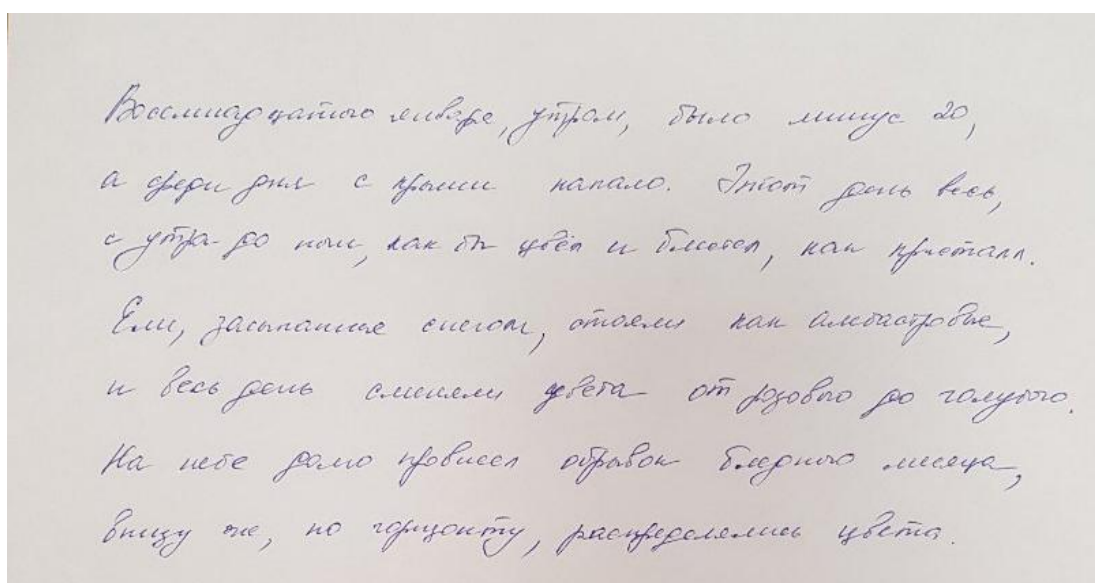 Восемнадцатого января, утром, было минус 20,
а среди дня с крыши капало. Этот день весь,
с утра до ночи, как бы цвёл и блестел, как кристалл.
Ели, засыпанные снегом, стояли как алебастровые,
и весь день сменяли цвета от розового до голубого.
На небе долго провисел обрывок бледного месяца,
внизу же, по горизонту, распределялись цвета.